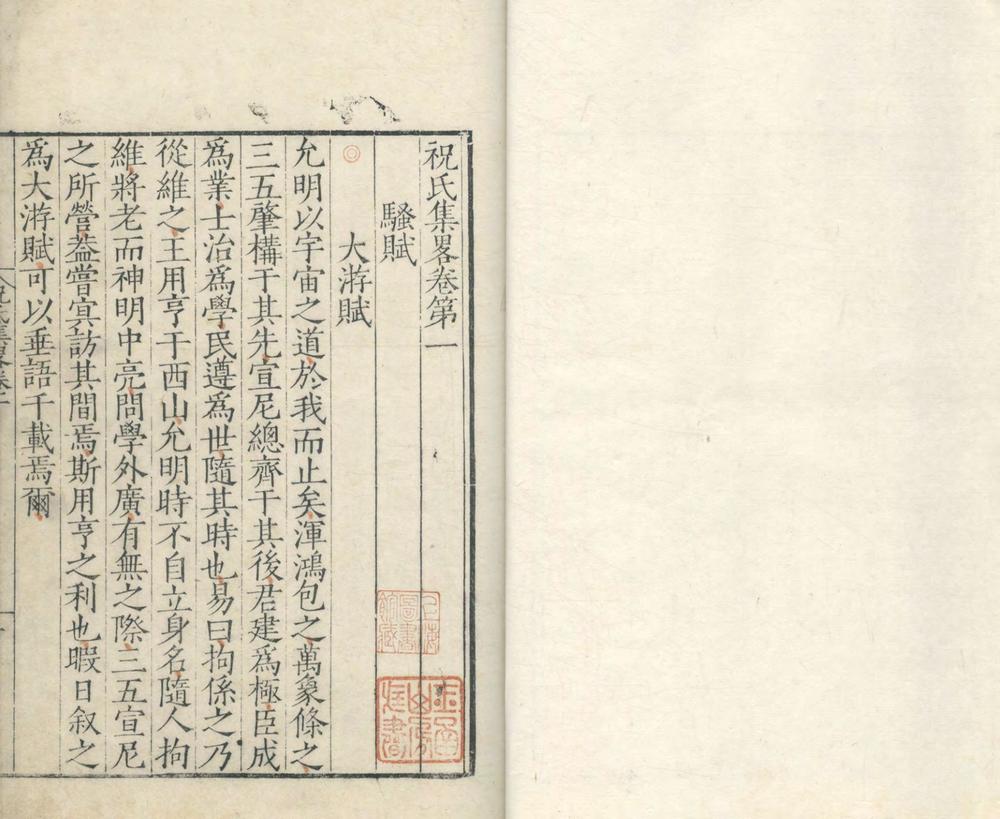 祝氏集畧卷第一
騷賦
大游賦
允明以宇宙之道於我而止矣渾鴻包之萬象條之
三五肇構于其先宣尼總齊于其後君建爲極臣成
爲業士治爲學民遵爲世隨其時也易曰拘係之乃
從維之王用亨于西山允明時不自立身名隨人拘
維將老而神明中亮問學外廣有無之際三五宣尼
之所營葢嘗寘訪其間焉斯用亨之利也暇日叙之
爲大游賦可以垂語千載焉爾
上海圖書館藏